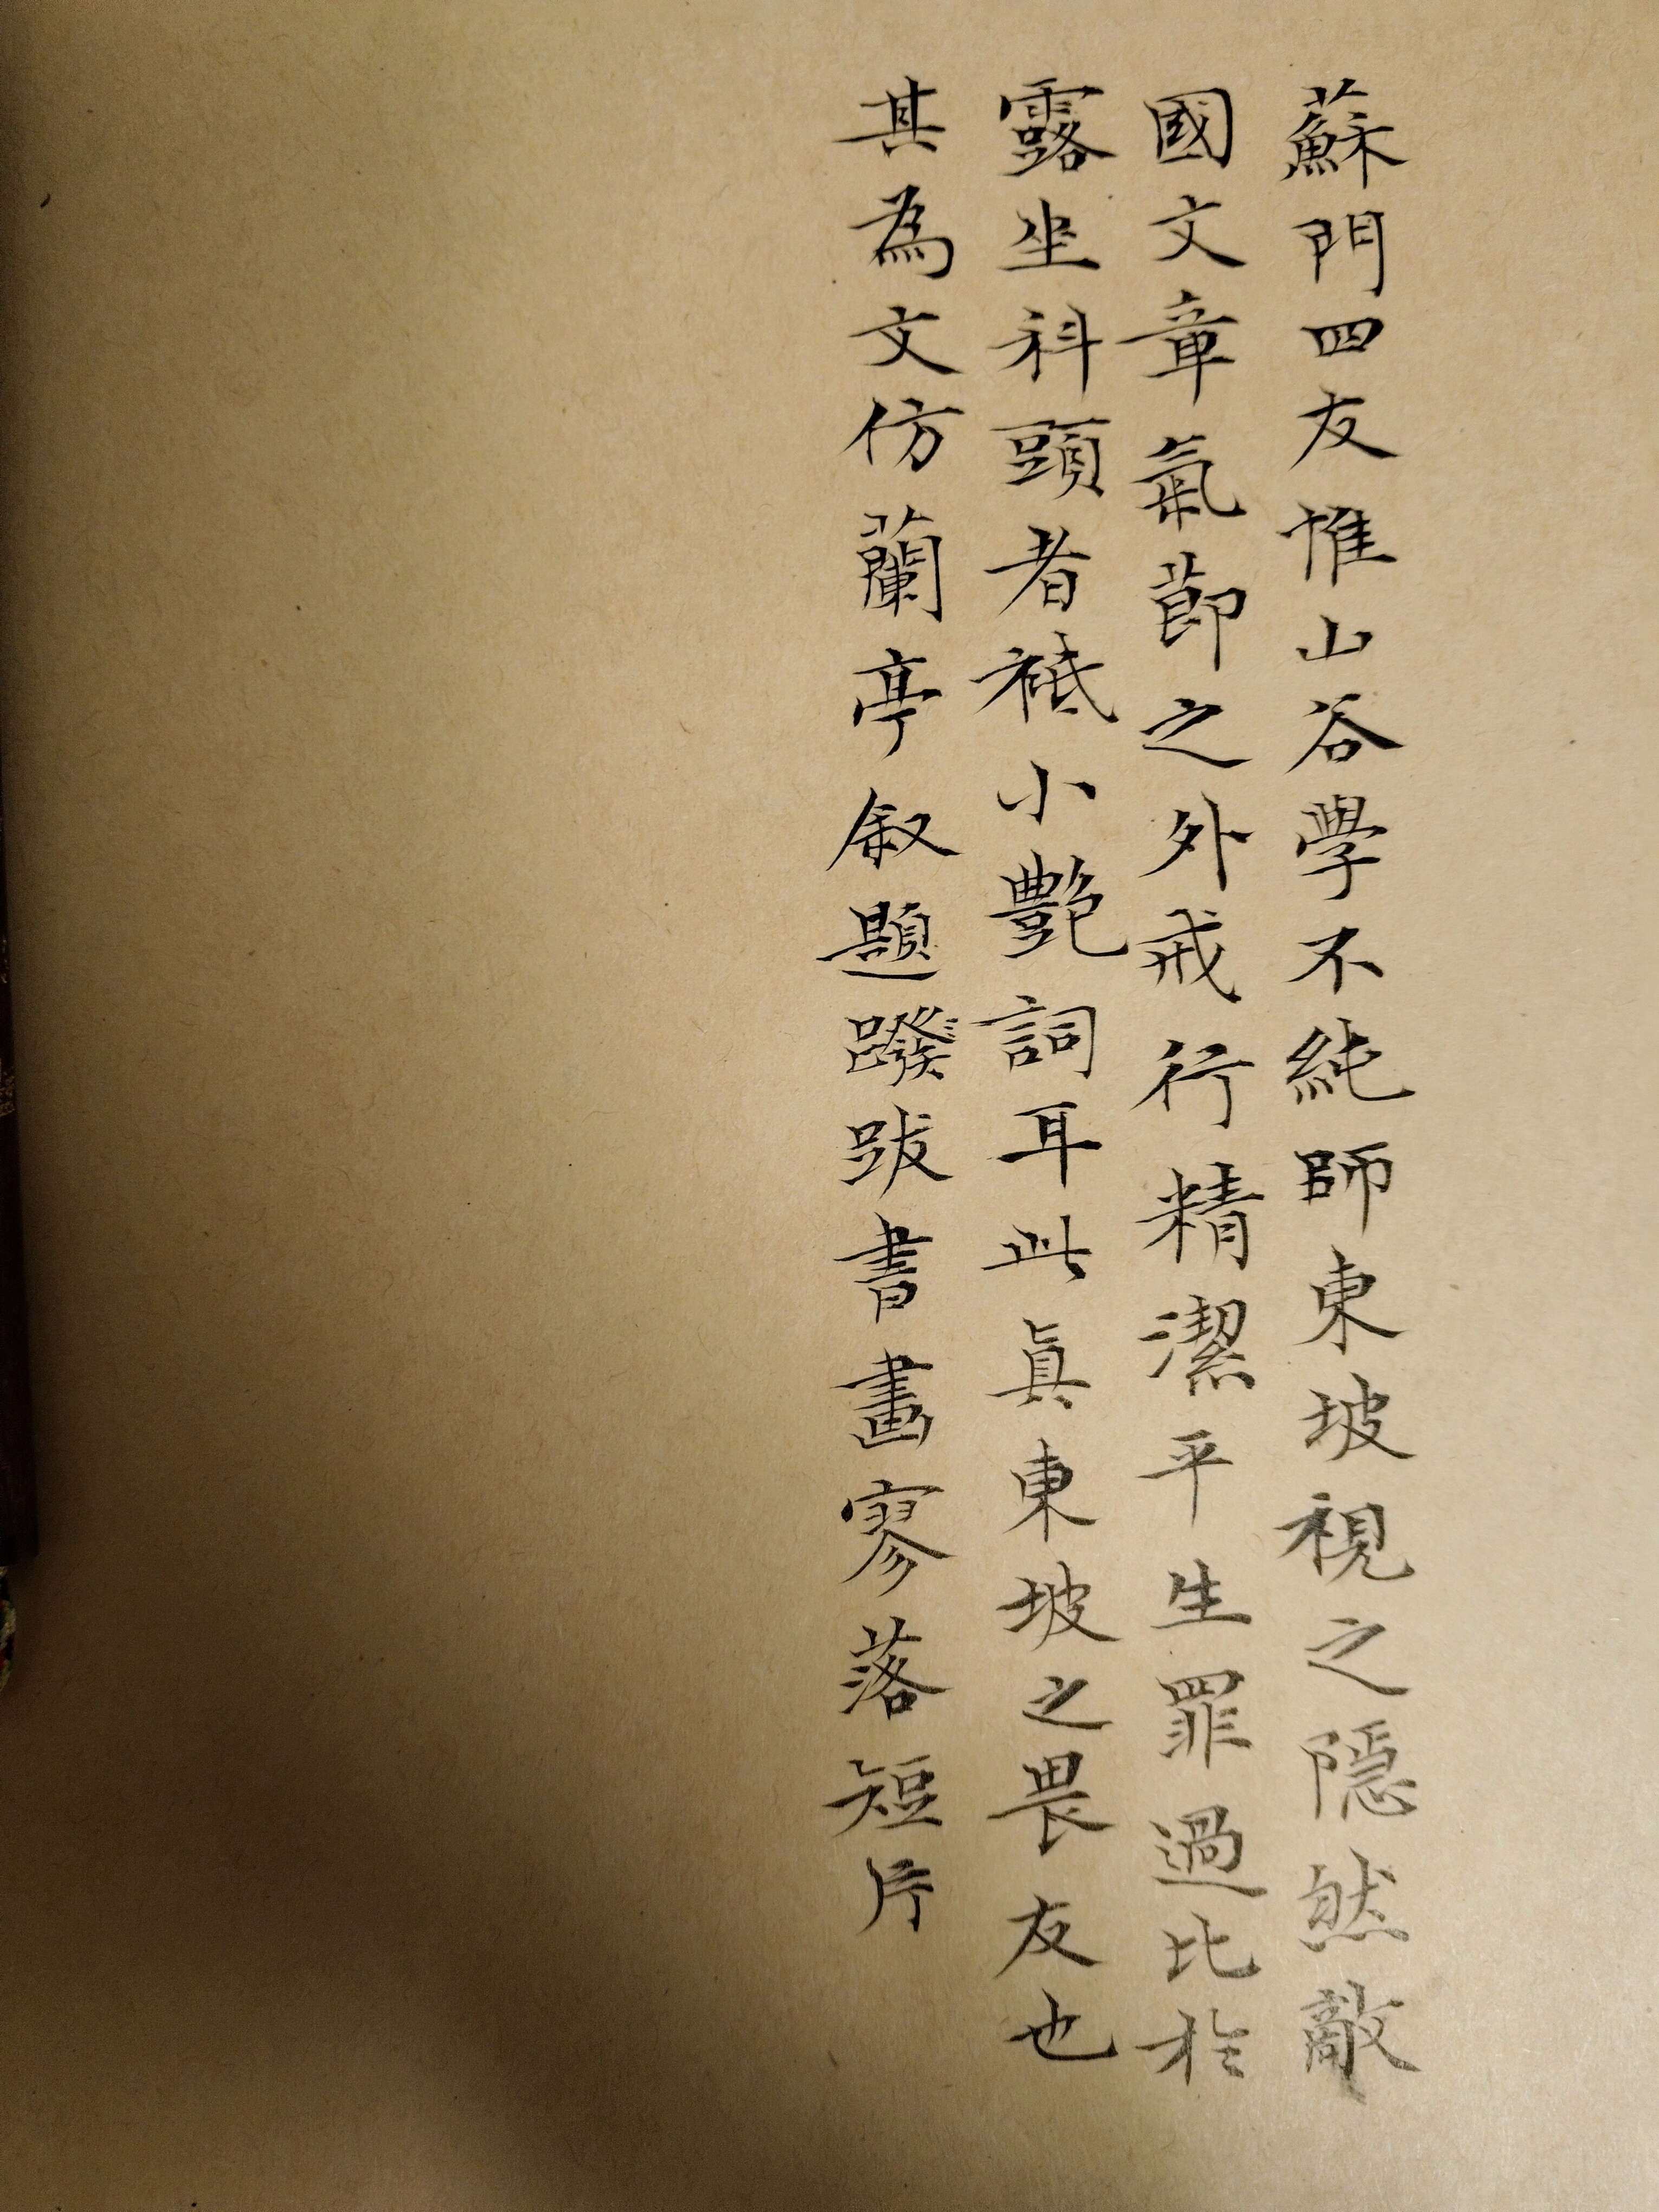 蘇門四友惟山谷學不純師東坡視之隱然敵
國文章氣節之外戒行精潔平生罪過比於
露坐科頭者祗小艷詞耳此眞東坡之畏友也
其為文仿蘭亭叙題跋書畫寥落短片